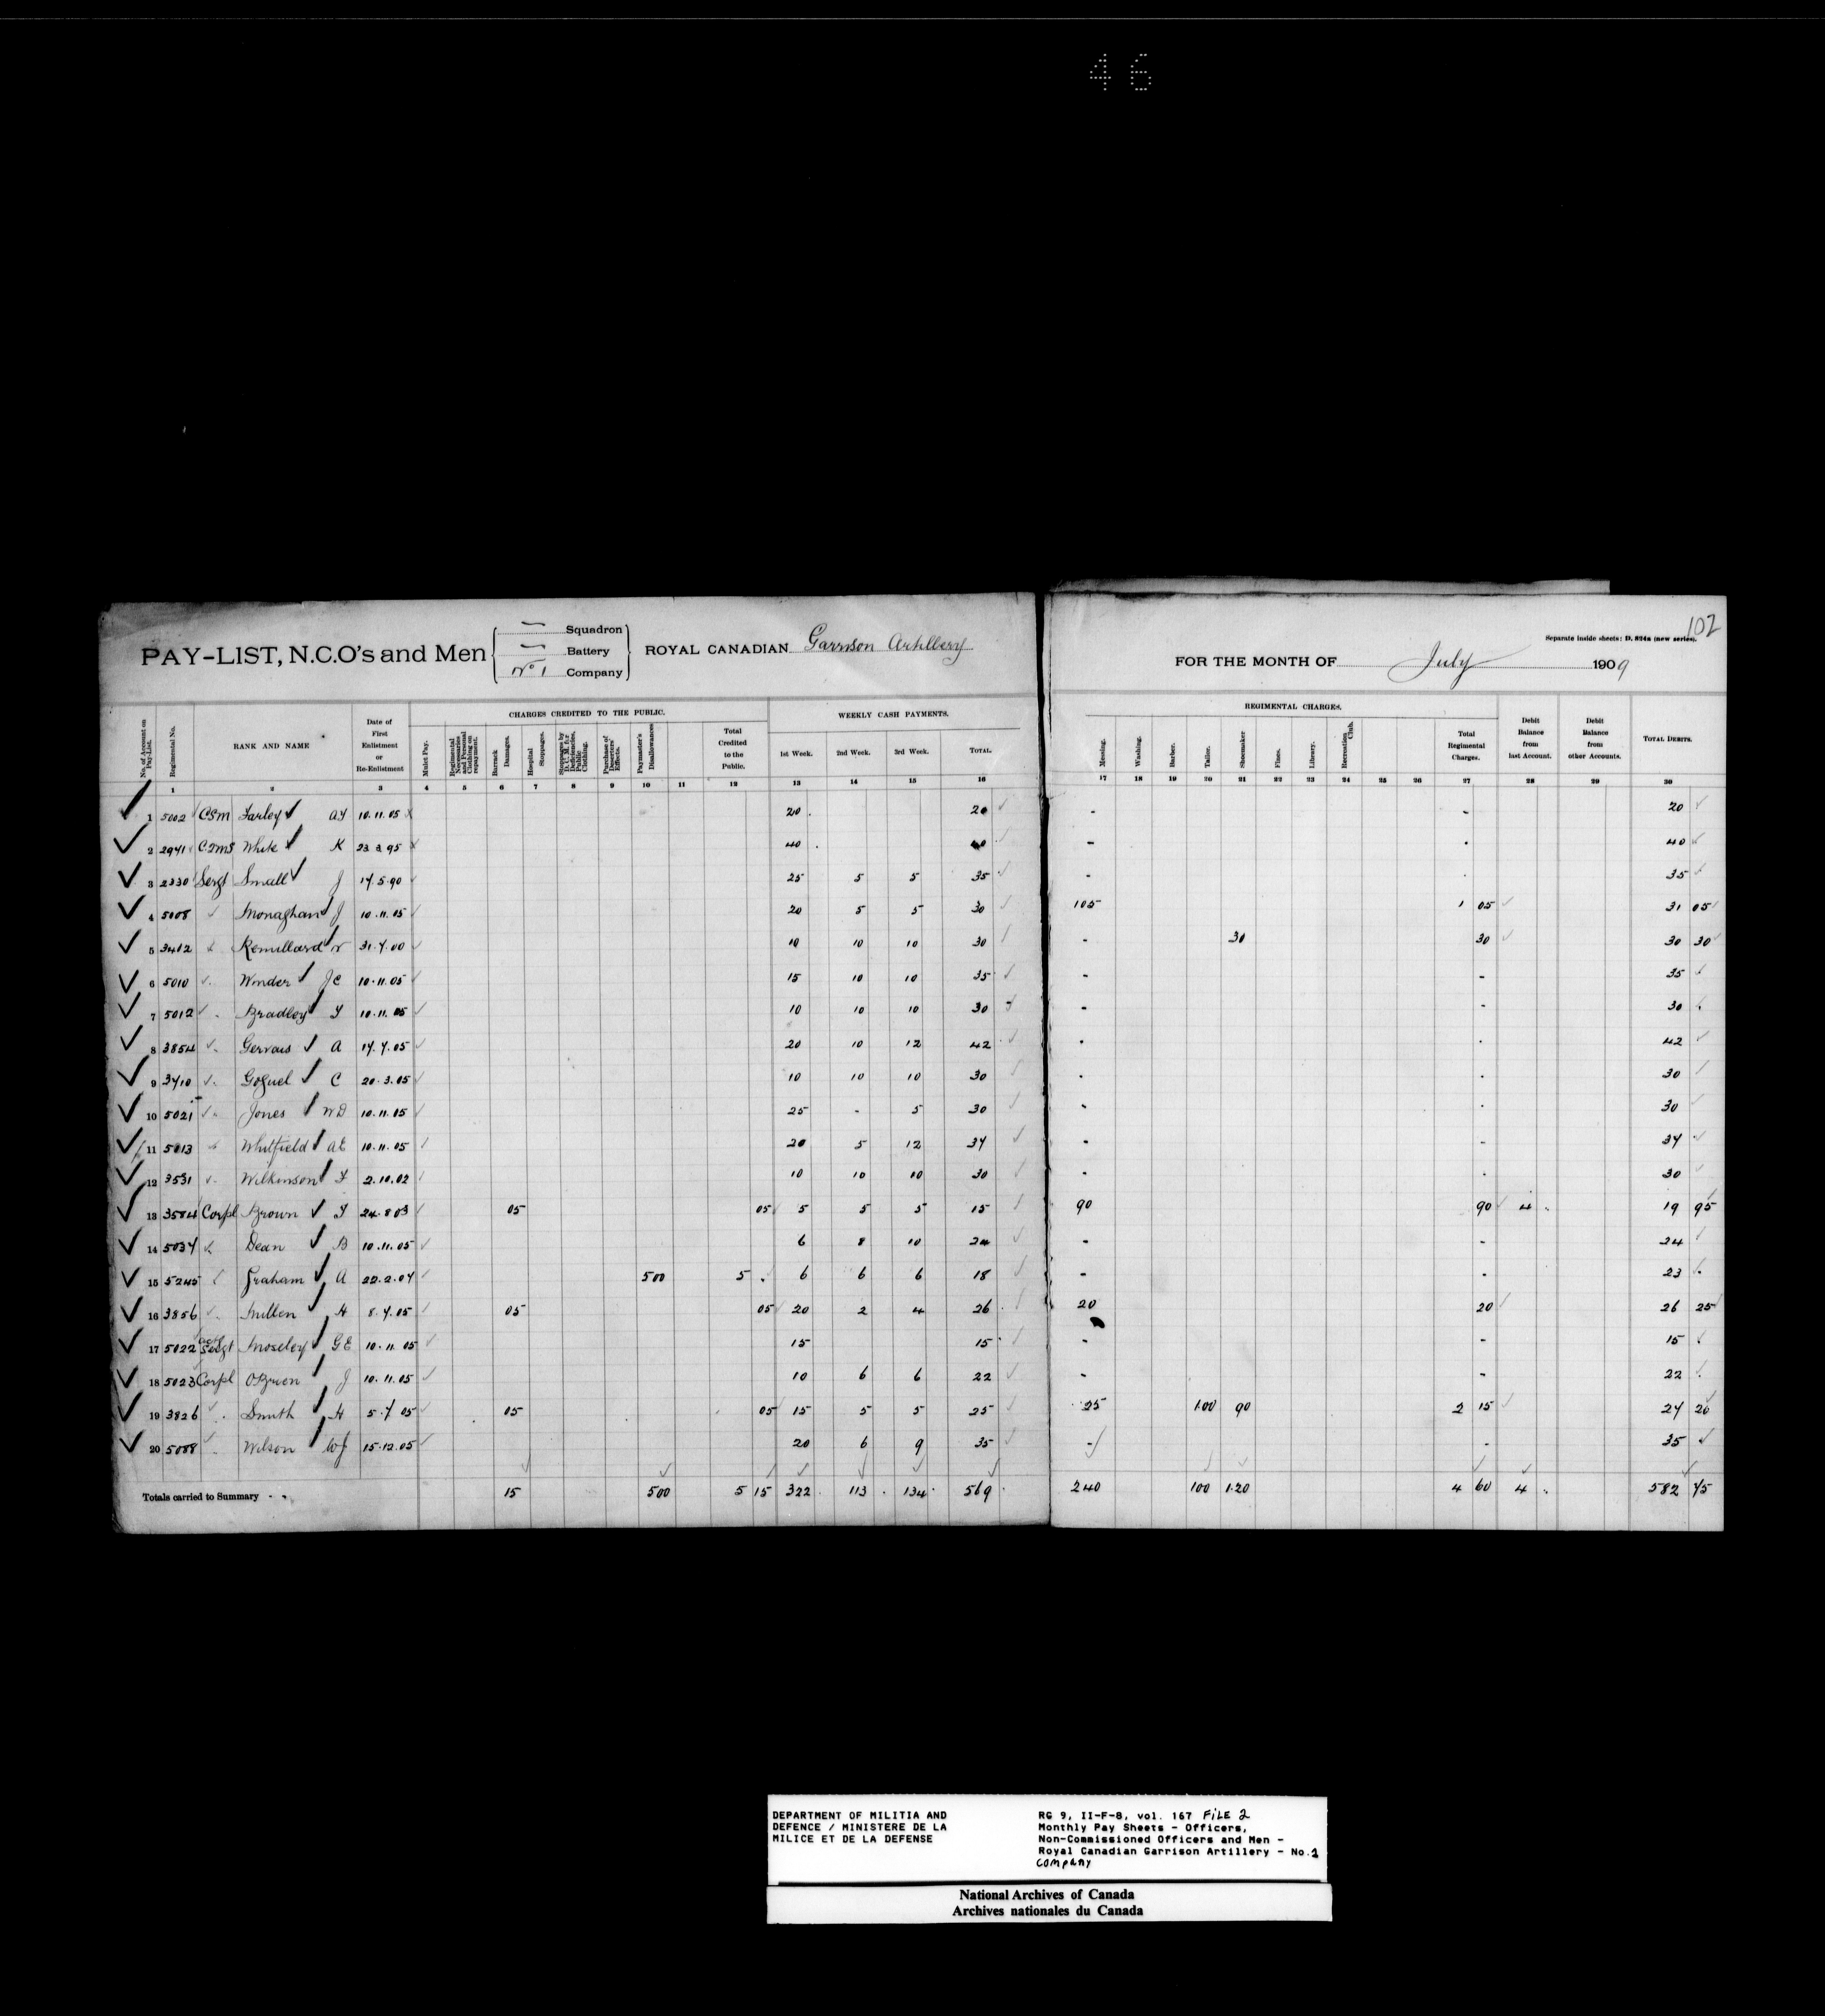 46
102
Separate inside sheets: D. 824a (new series).
PAY-LIST, N.C.O's and Men — Squadron — Battery No 1 Company ROYAL CANADIAN Garrison Artillery FOR THE MONTH OF July 1909
CHARGES CREDITED TO THE PUBLIC. WEEKLY CASH PAYMENTS. REGIMENTAL CHARGES.
No. of Account on Pay-List. Regimental No. RANK AND NAME Date of First Enlistment or Re-Enlistment Mulct Pay. Regimental Necessaries and Personal Clothing on repayment. Barrack Damages. Hospital Stoppages. Stoppages by D.C.M. for Deficiencies, Public Clothing. Purchase of Deserters' Effects. Paymaster's Disallowances Total Credited to the Public. 1st Week. 2nd Week. 3rd Week. TOTAL. Messing. Washing. Barber. Tailor. Shoemaker Fines. Library. Recreation Club. Total Regimental Charges. Debit Balance from last Account. Debit Balance from other Accounts. TOTAL DEBITS.
1 2 3 4 5 6 7 8 9 10 11 12 13 14 15 16 17 18 19 20 21 22 23 24 25 26 27 28 29 30
1 5002 CSM Farley AY 10.11.05 20 20 - - 20
2 2941 CQMS White K 23.3.95 40 40 - . 40
3 2330 Sergt Small J 17.5.90 25 5 5 35 - . 35
4 5008 " Monaghan J 10.11.05 20 5 5 30 105 1 05 31 05
5 3402 " Remillard N 31.7.00 10 10 10 30 - 30 30 30 30
6 5010 " Winder JC 10.11.05 15 10 10 35 - - 35
7 5012 " Bradley Y 10.11.05 10 10 10 30 - - 30
8 3854 " Gervais A 17.7.05 20 10 12 42 . . 42
9 3710 " Goguel C 20.3.05 10 10 10 30 . . 30
10 5021 " Jones WD 10.11.05 25 - 5 30 - . 30
11 5013 " Whitfield AE 10.11.05 20 5 12 37 - - 37
12 3531 " Wilkinson F 2.10.02 10 10 10 30 - . 30
13 3584 Corpl Brown Y 24.8.03 05 05 5 5 5 15 90 90 4 19 95
14 5037 " Dean B 10.11.05 6 8 10 24 - - 24
15 5245 " Graham A 22.2.07 500 5 6 6 6 18 - - 23
16 3856 " Millen H 8.7.05 05 05 20 2 4 26 20 20 26 25
17 5022 actg Sergt Moseley GE 10.11.05 15 15 - - 15
18 5023 Corpl OBrien J 10.11.05 10 6 6 22 - - 22
19 3826 " Smith H 5.7.05 05 05 15 5 5 25 25 100 90 2 15 27 20
20 5088 " Wilson WJ 15.12.05 20 6 9 35 - - 35
Totals carried to Summary - - 15 500 5 15 322 113 134 569 240 100 1.20 4 60 4 582 75
DEPARTMENT OF MILITIA AND
DEFENCE / MINISTERE DE LA
MILICE ET DE LA DEFENSE
RG 9, II-F-8, vol. 167 FiLE 2
Monthly Pay Sheets - Officers,
Non-Commissioned Officers and Men -
Royal Canadian Garrison Artillery - No.1
company
National Archives of Canada
Archives nationales du Canada